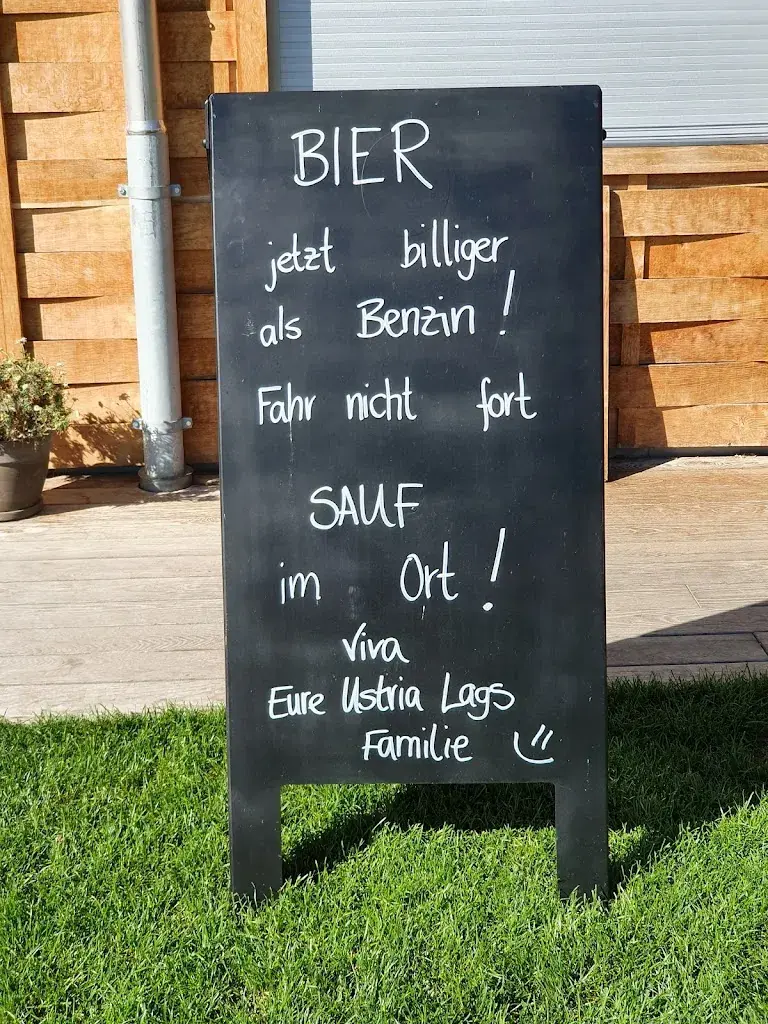 BIER
jetzt billiger
als Benzin !
Fahr nicht fort
SAUF
im Ort !
Viva
Eure Ustria Lags
Familie